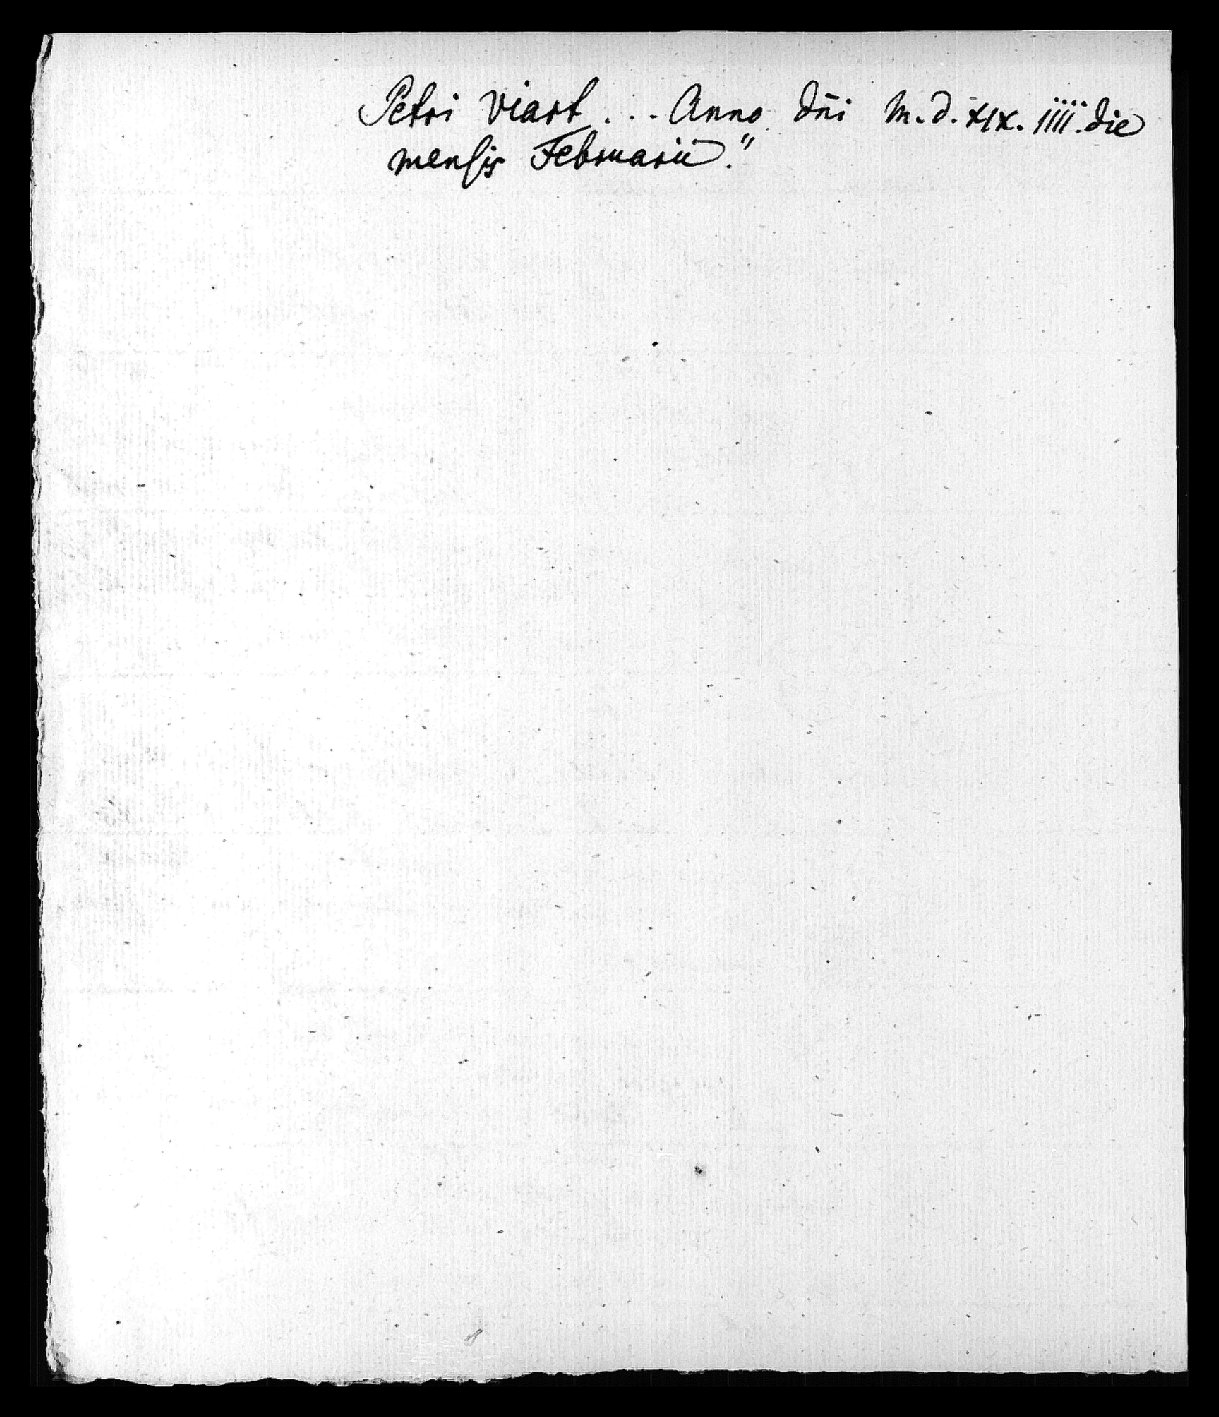 Petri Viart ... Anno dñi M.D.XIX. iiii. die
mensis Februarii."